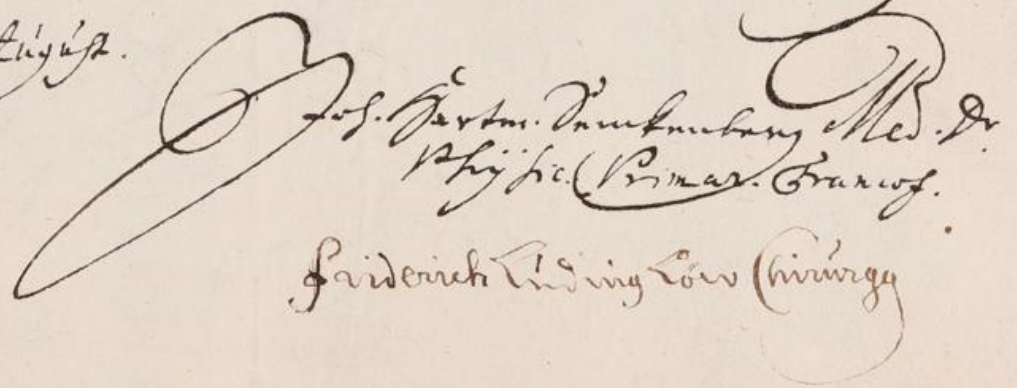 August.
Joh. Hartm. Senckenberg Med. Dr.
Physic. Primar. Francof.
Friderich Ludwig Löw Chirurgg